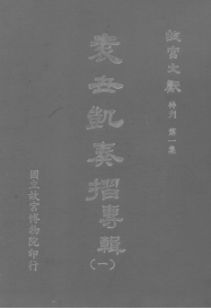 故宮文獻
特刊 第一集
袁世凱奏摺專輯
(一)
國立故宮博物院印行